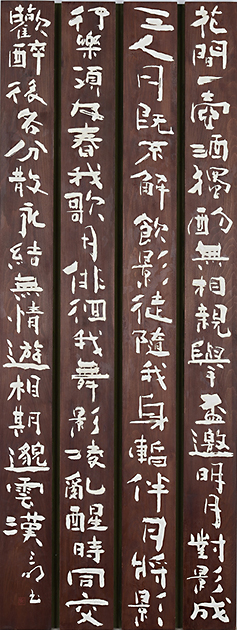 花間一壺酒獨酌無相親舉盃邀明月對影成
三人月既不解飲影徒隨我身暫伴月將影
行樂須及春我歌月徘徊我舞影凌亂醒時同交
歡醉後各分散永結無情遊相期邈雲漢